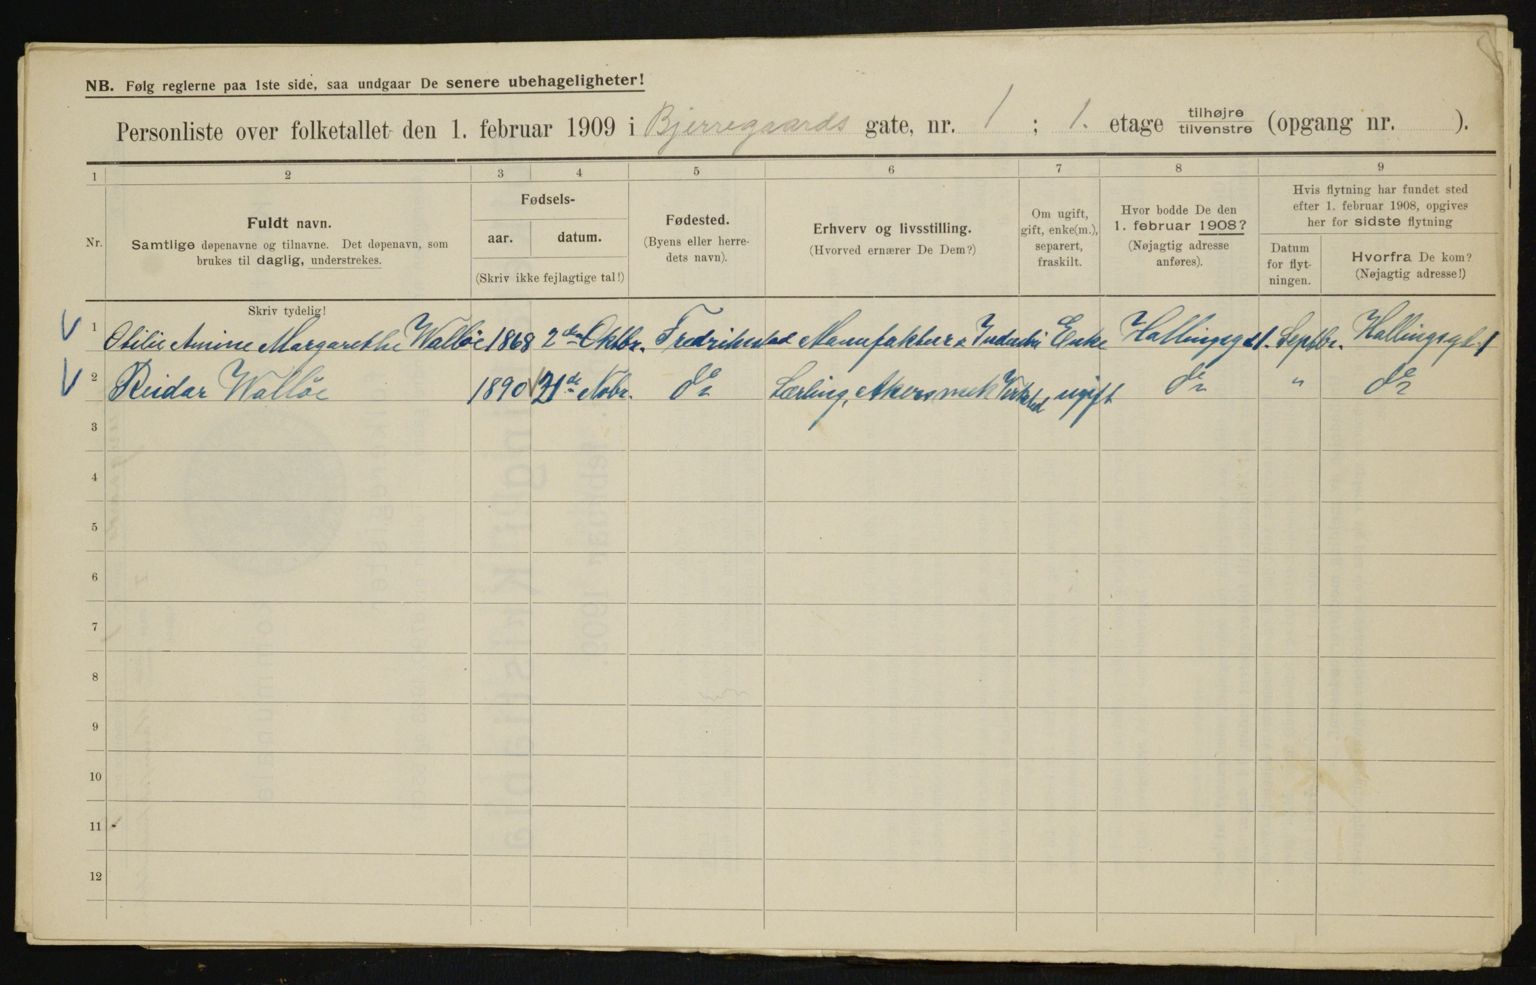 NB. Følg reglerne paa 1ste side, saa undgaar De senere ubehageligheter!
Personliste over folketallet den 1. februar 1909 i Bjerregaards gate, nr. 1 ; 1. etage tilhøjre tilvenstre (opgang nr. ).
1 2 3 4 5 6 7 8 9
Nr.
Fuldt navn.
Samtlige døpenavne og tilnavne. Det døpenavn, som
brukes til daglig, understrekes.
Fødsels-
aar. datum.
(Skriv ikke fejlagtige tal!)
Fødested.
(Byens eller herre-
dets navn).
Erhverv og livsstilling.
(Hvorved ernærer De Dem?)
Om ugift,
gift, enke(m.),
separert,
fraskilt.
Hvor bodde De den
1. februar 1908?
(Nøjagtig adresse
anføres).
Hvis flytning har fundet sted
efter 1. februar 1908, opgives
her for sidste flytning
Datum
for flyt-
ningen.
Hvorfra De kom?
(Nøjagtig adresse!)
Skriv tydelig!
1 Otilie Amine Margarethe Walløe 1868 2den Oktbr. Fredrikstad Manufaktur & Industri Enke Hallingsgd 1. Septbr. Hallingsgd. 1
2 Reidar Walløe 1890 21de Nobr. do Lærling, Akers mek Verksted ugift do " do
3
4
5
6
7
8
9
10
11
12